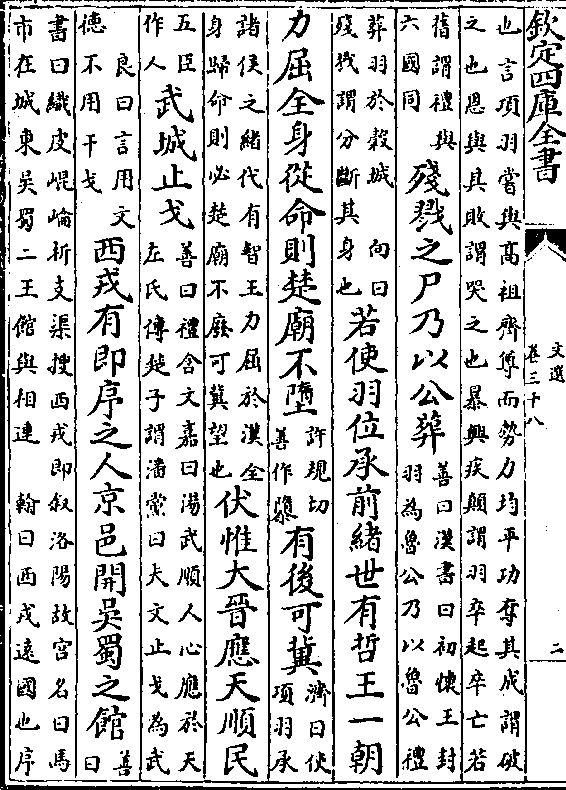 欽定四庫全書
文選
卷三十八
二
也言項羽嘗與高祖齊尊而勢力均平功奪其成謂破
之也恩與其敗謂哭之也暴興疾顛謂羽卒起卒亡若
謂禮與
六國同
殘戮之尸乃以公葬
善曰漢書曰初懷王封
羽為魯公乃以魯公禮
葬羽於穀城 向曰
殘戮謂分斷其身也
若使羽位承前緒世有哲王一朝
力屈全身從命則楚廟不墮
許規切
善作隳
有後可冀
濟曰使
項羽承
諸侯之緒代有智王力屈於漢全
身歸命則必楚廟不廢可冀望也
伏惟大晉應天順民
五臣
作人
武城止戈
善曰禮含文嘉曰湯武順人心應於天
左氏傳楚子謂潘黨曰夫文止戈為武
良曰言用文
德不用干戈
西戎有即序之人京邑開吳蜀之館
善
曰
書曰織皮崐崘析支渠搜西戎即叙洛陽故宮名曰馬
市在城東吳蜀二王館與相連 翰曰西戎遠國也序